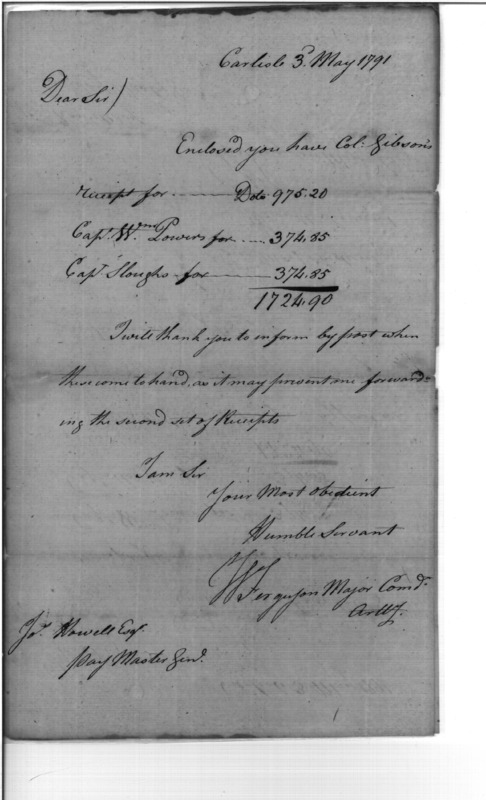 Carlisle 3d. May 1791
Dear Sir)
Enclosed you have Col: Gibson's
receipt for Dols 975.20
Capt. Wm. Powers for 374.85
Capt. Sloughs for 374.85
1724.90
I will thank you to inform by post when
these come to hand, as it may prevent me forward-
ing the second set of Receipts
I am Sir
Your Most Obedient
Humble Servant
W Ferguson Major Comd.
Arty.
Jos. Howell Esqr.
Pay Master Genl.